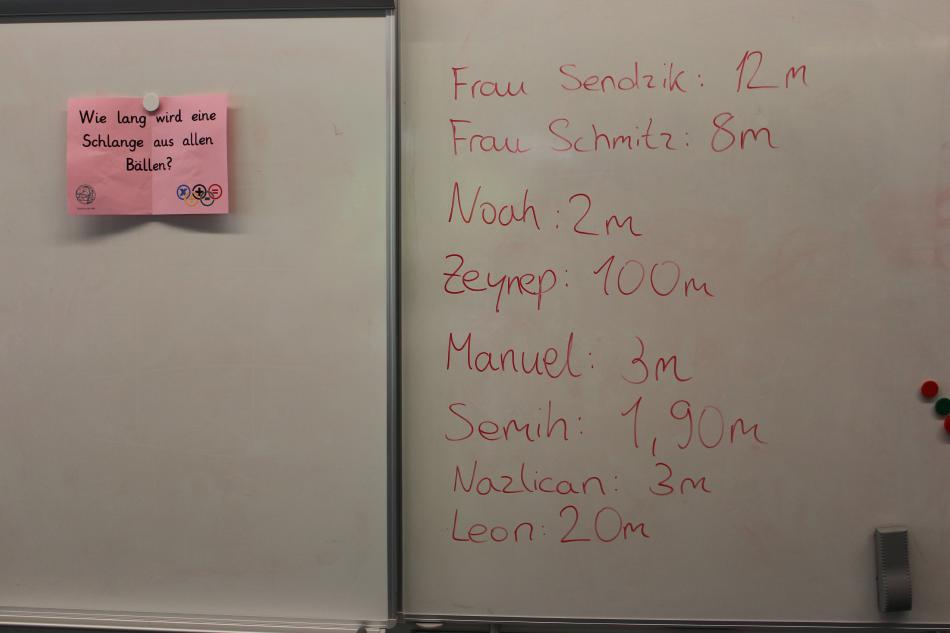 Wie lang wird eine
Schlange aus allen
Bällen?
Frau Sendzik: 12m
Frau Schmitz: 8m
Noah: 2m
Zeynep: 100m
Manuel: 3m
Semih: 1,90m
Nazlican: 3m
Leon: 20m